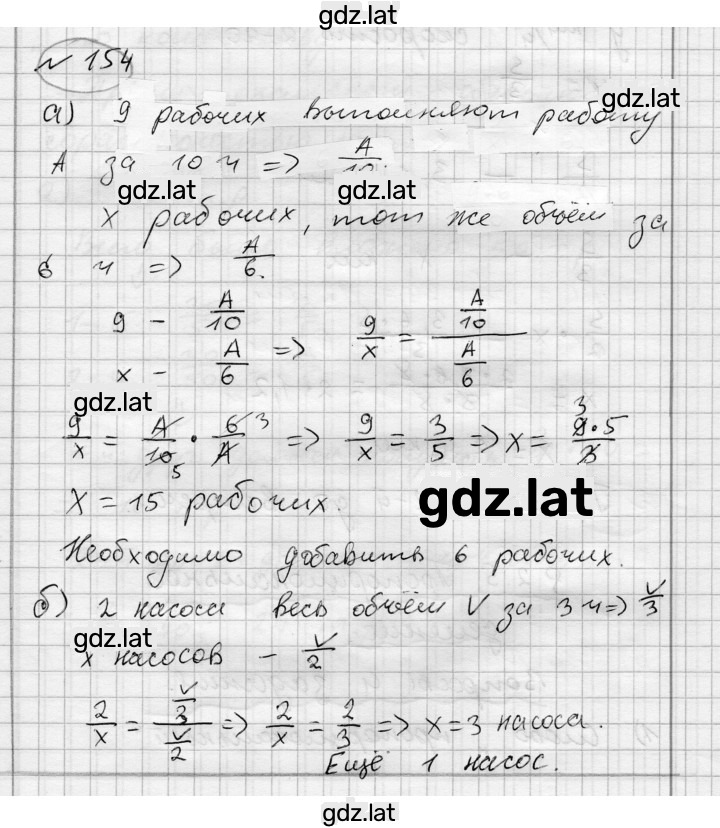 gdz.lat
№ 154
gdz.lat
а) 9 рабочих выполняют работу
А за 10 ч => A/10.
gdz.lat gdz.lat
x рабочих, тот же объём за
6 ч => A/6.
9 - A/10
x - A/6 => 9/x = (A/10)/(A/6)
gdz.lat
9/x = A/10 5 · 6/A 3 => 9/x = 3/5 => x = 3 9·5/3
X = 15 рабочих. gdz.lat
Необходимо добавить 6 рабочих.
б) 2 насоса весь объём V за 3 ч => V/3
gdz.lat
x насосов - V/2
2/x = (V/3)/(V/2) => 2/x = 2/3 => x = 3 насоса.
Ещё 1 насос.
gdz.lat